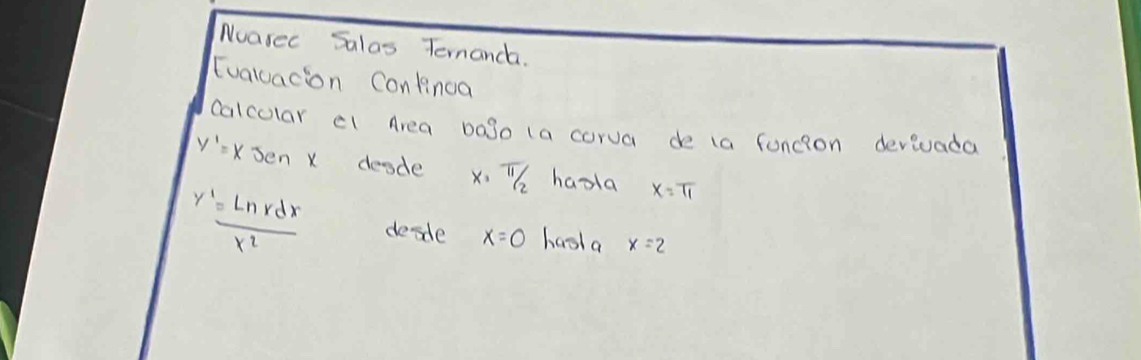 Nuarec Salas Fernanda.
Evaluación Continua
Calcular el Area bajo la curva de la función derivada.
y' = x Sen x desde x = π/2 hasta x = π
y' = Ln x dx / x² desde x = 0 hasta x = 2